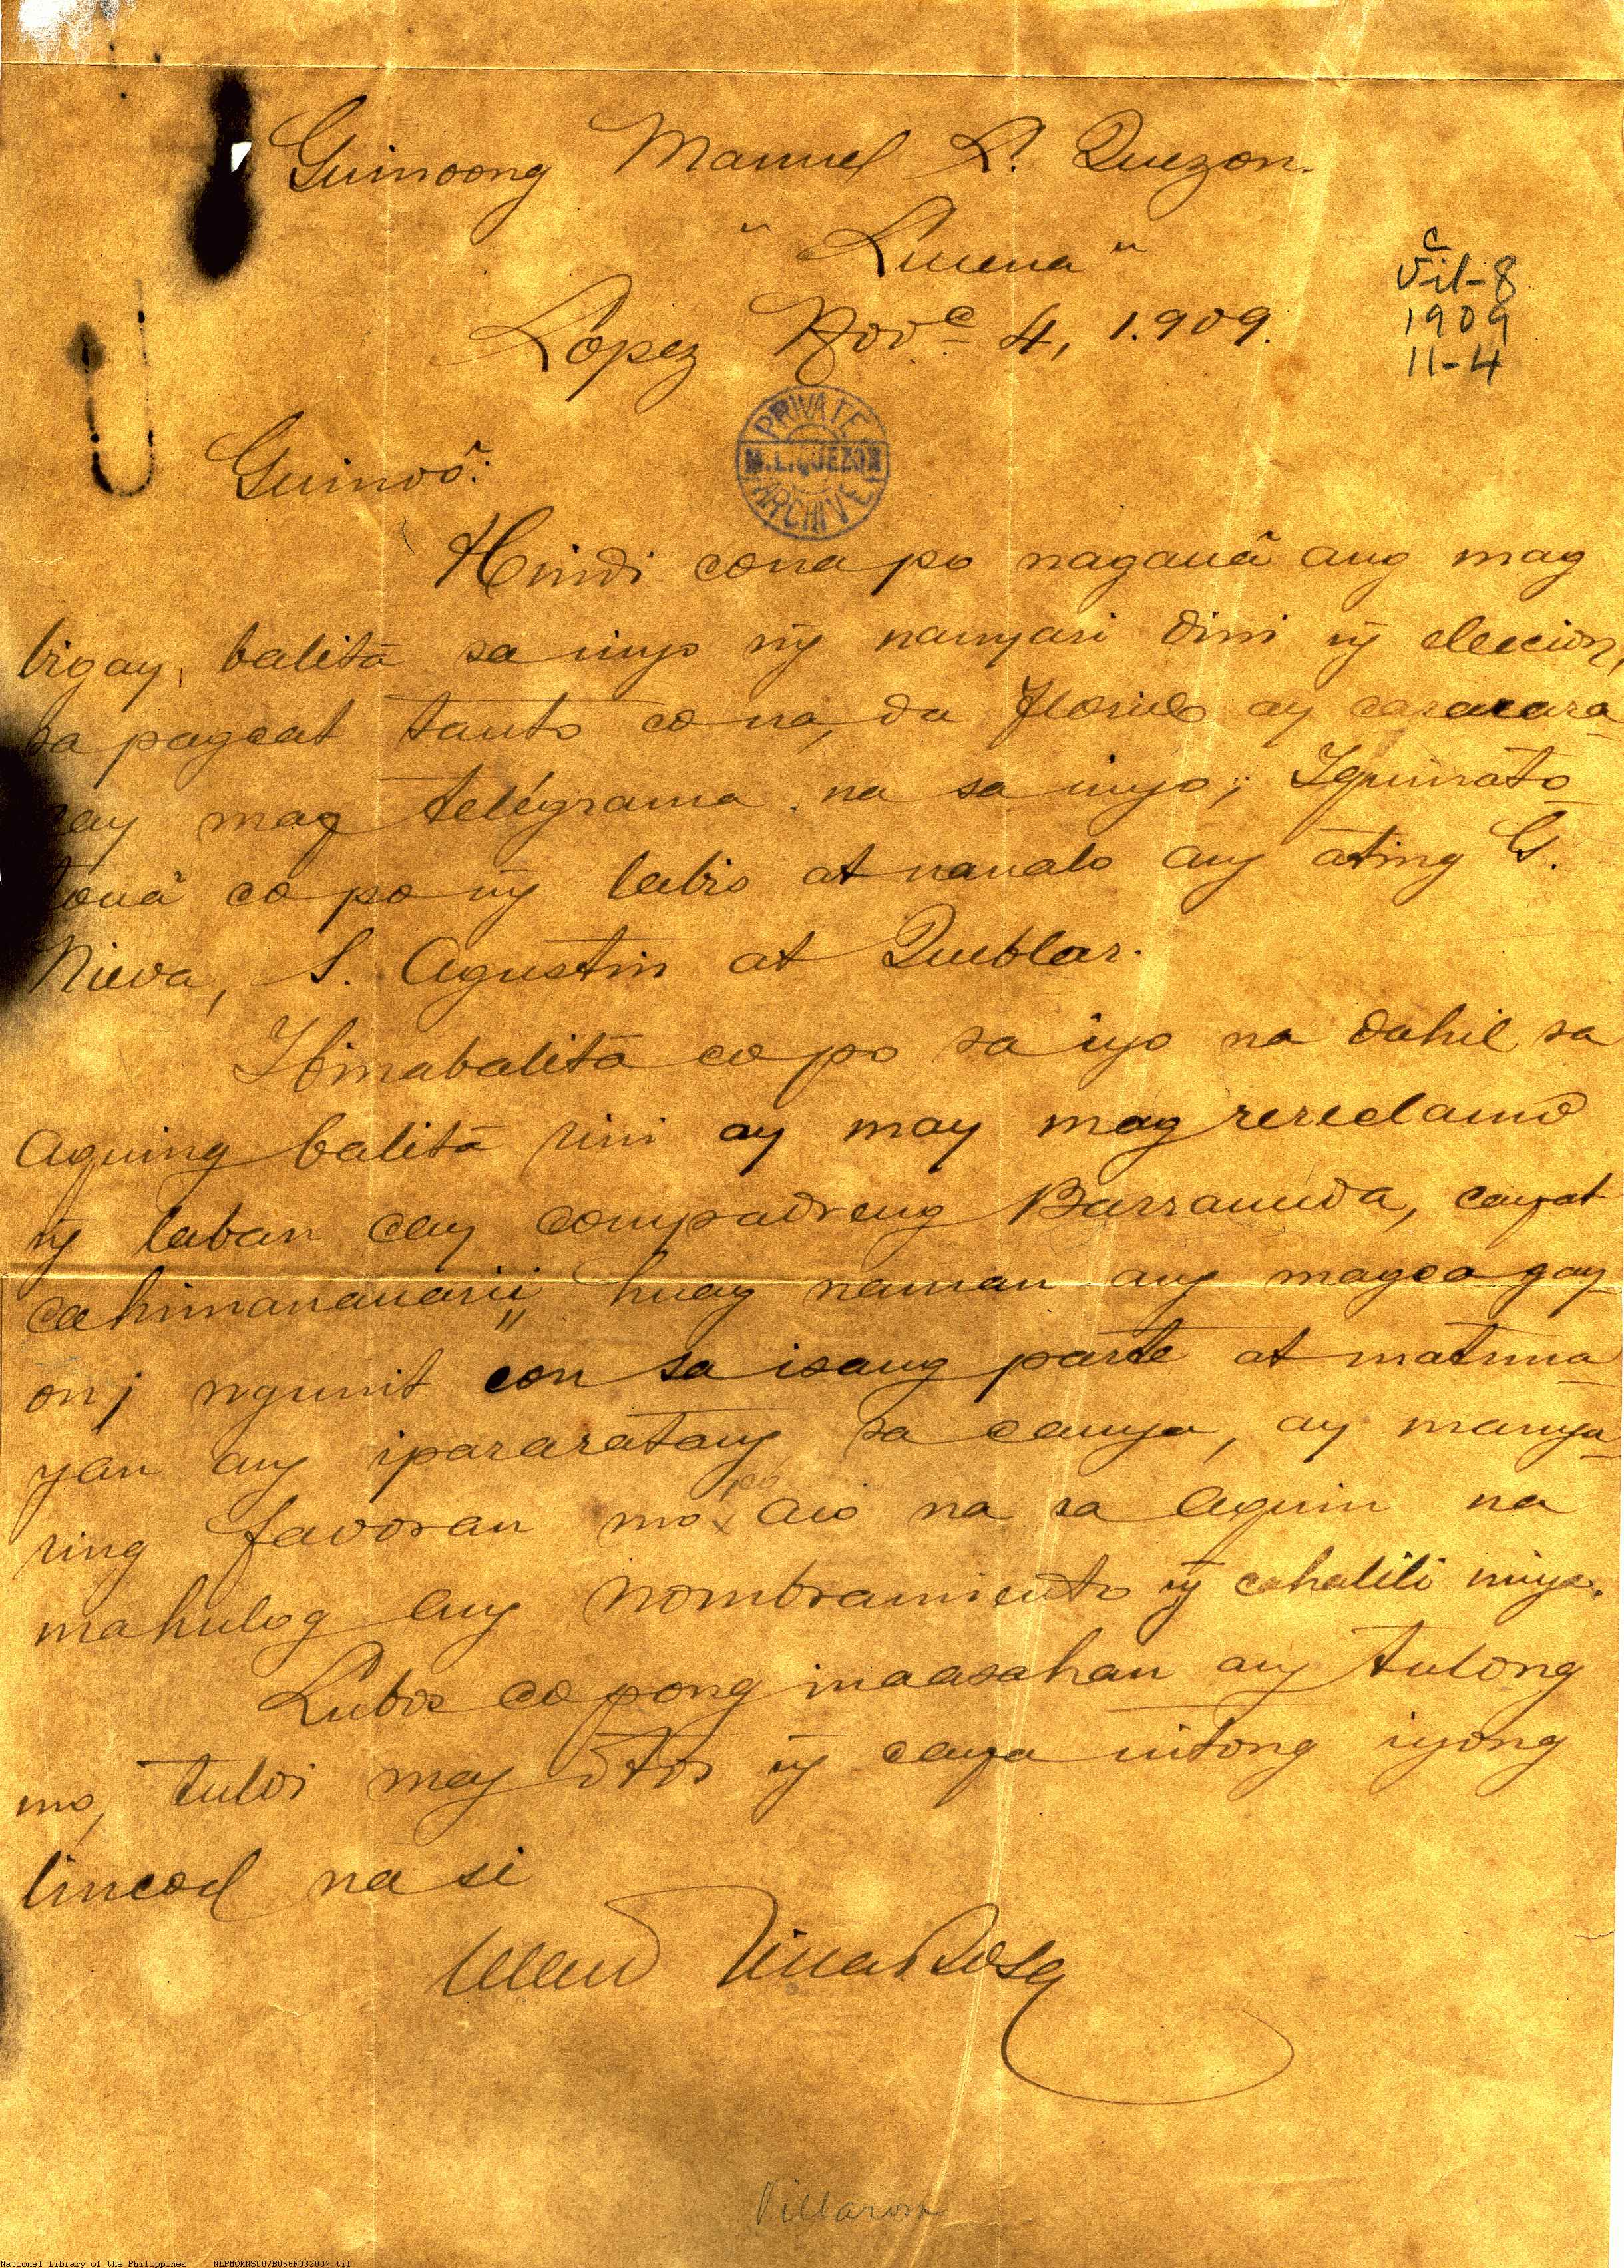 Guinoong Manuel L. Quezon.
" Lucena "
c
Vil-8
1909
11-4
Lopez Nov.e 4, 1.909.
PRIVATE
M.L.QUEZON
ARCHIVE
Guinoô:
Hindi cona po nagauâ ang mag
bigay, balitâ sa inyo nḡ nanyari dini nḡ eleccion,
sa pagcat tanto co na, da Florido ay cararaca
ray mag telégrama na sa inyo; Iquinato-
touâ co po nḡ labis at nanalo ang ating G.
Nieva, S. Agustin at Queblar.
Ibinabalitâ co po sa iyo na dahil sa
aquing balitâ rini ay may mag rereclamo
nḡ laban cay compadreng Barranuda, cayat
cahimanauarii huag naman ang magca gay-
on; ngunit con sa isang parte at matuna-
yan ang ipararatang sa canya, ay manya-
ring favoran mo po aco na sa aquin na
mahulog ang nombramiento nḡ cahalili niya.
Lubos co pong inaasahan ang tulong
mo, tuloi may òtos nḡ caya nitong iyong
lincod na si
Villarosa
Villarosa
National Library of the Philippines NLPMQMNS007B056F032007.tif